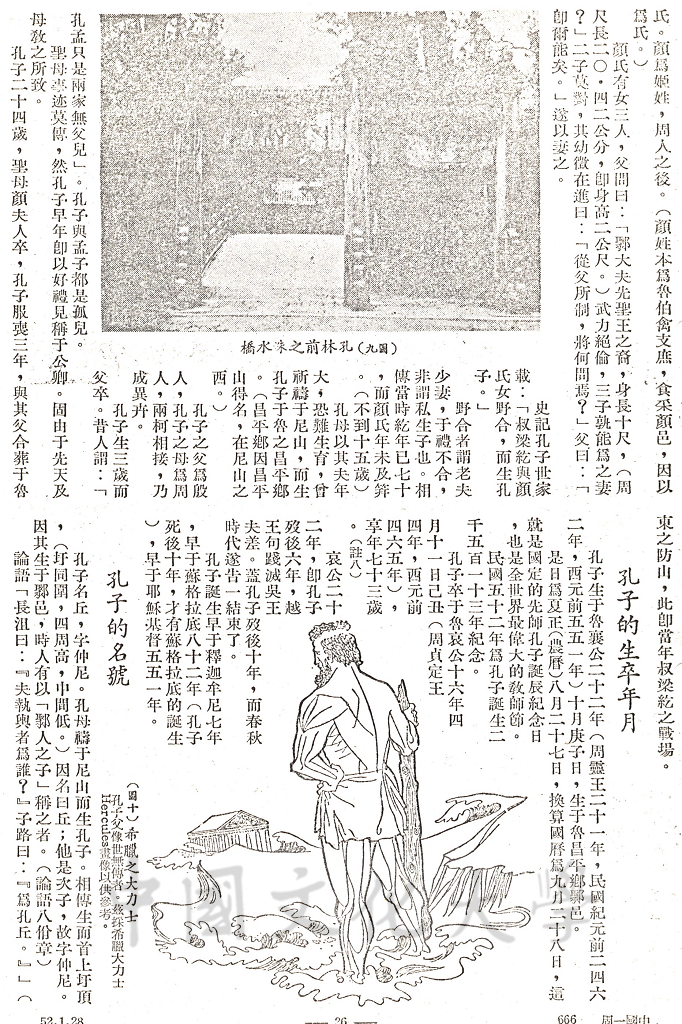 氏。顏為姬姓,周人之後。(顏姓本為魯伯禽支庶,食采顏邑,因以
為氏。)
顏氏有女三人,父問曰:「鄹大夫先聖王之裔,身長十尺,(周
尺長二〇‧四二公分,卽身高二公尺。)武力絕倫,三子孰能為之妻
?」二子莫對,其幼徵在進曰:「從父所制,將何問焉?」父曰:「
卽爾能矣。」遂以妻之。
橋水洙之前林孔(九圖)
史記孔子世家
載:「叔梁紇與顏
氏女野合,而生孔
子。」
野合者謂老夫
少妻,于禮不合,
非謂私生子也。相
傳當時紇年已七十
,而顏氏年未及笄
。(不到十五歲)
孔母以其夫年
大,恐難生育,曾
祈禱于尼山,而生
孔子于魯之昌平鄉
。(昌平鄉因昌平
山得名,在尼山之
西。)
孔子之父為殷
人,孔子之母為周
人,兩柯相接,乃
成異卉。
孔子生三歲而
父卒。昔人謂:「
孔孟只是兩家無父兒」。孔子與孟子都是孤兒。
聖母事迹莫傳,然孔子早年卽以好禮見稱于公卿。固由于先天及
母敎之所致。
孔子二十四歲,聖母顏夫人卒,孔子服喪三年,與其父合葬于魯
東之防山,此卽當年叔梁紇之戰場。
孔子的生卒年月
孔子生于魯襄公二十二年(周靈王二十一年,民國紀元前二四六
二年,西元前五五一年)十月庚子日,生于魯昌平鄉鄹邑。
是日為夏正(農曆)八月二十七日,換算國曆為九月二十八日,這
就是國定的先師孔子誕辰紀念日
,也是全世界最偉大的敎師節。
民國五十二年為孔子誕生二
千五百一十三年紀念。
孔子卒于魯哀公十六年四
月十一日己丑(周貞定王
四年,西元前
四六五年),
享年七十三歲
。(註八)
哀公二十
二年,卽孔子
歿後六年,越
王句踐滅吳王
夫差。蓋孔子歿後十年,而春秋
時代遂告一結束了。
孔子誕生早于釋迦牟尼七年
,早于蘇格拉底八十二年(孔子
死後十年,才有蘇格拉底的誕生
),早于耶穌基督五五一年。
(圖十)希臘之大力士
孔子父像世無傳者。茲採希臘大力士
Hercules畫像以供參考。
孔子的名號
孔子名丘,字仲尼。孔母禱于尼山而生孔子。相傳生而首上圩頂
,(圩同圍,四周高,中間低。)因名曰丘;他是次子,故字仲尼。
因其生于鄹邑,時人有以「鄹人之子」稱之者。(論語八佾章)
論語「長沮曰:『夫執輿者為誰?』子路曰:『為孔丘。』」(
中國文化大學
52.1.28
— 26 —
666
中國一周